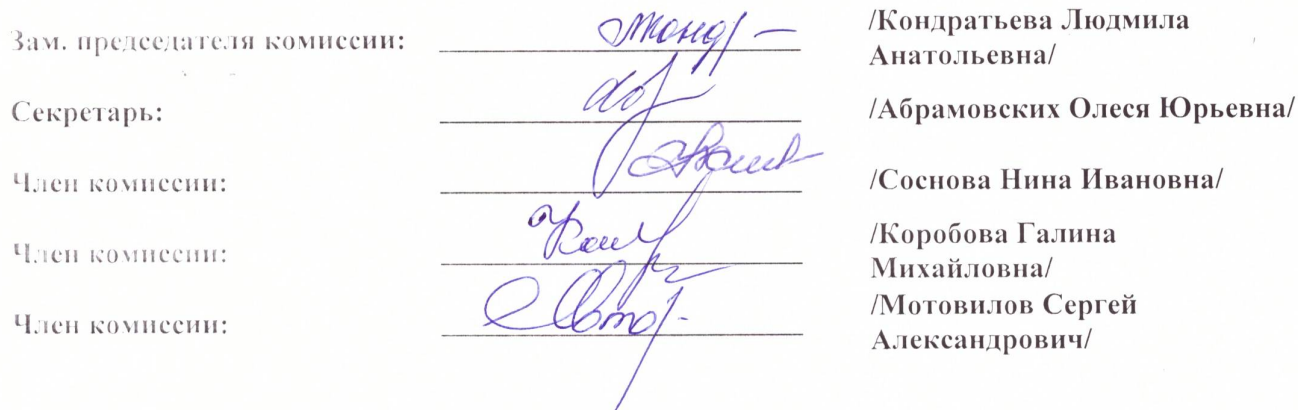 Зам. председателя комиссии: /Кондратьева Людмила
Анатольевна/
Секретарь: /Абрамовских Олеся Юрьевна/
Член комиссии: /Соснова Нина Ивановна/
Член комиссии: /Коробова Галина
Михайловна/
Член комиссии: /Мотовилов Сергей
Александрович/